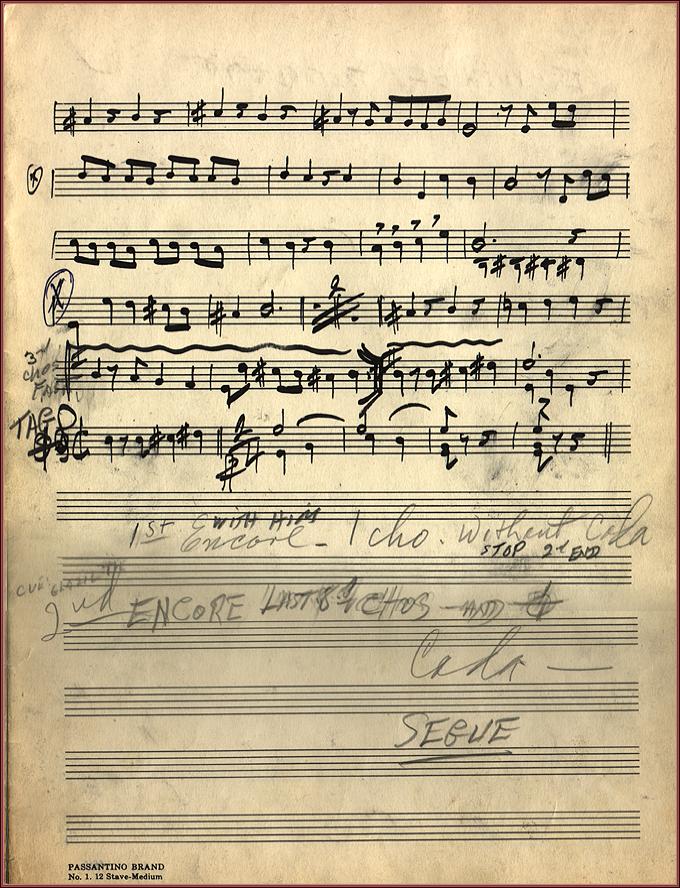 X
X
3rd
CHOS
TAG
1ST Encore - 1 cho. Without Coda
WITH HIM
STOP 2nd END
CUE
2nd ENCORE LAST 8 CHOS - AND
Coda —
SEGUE
PASSANTINO BRAND
No. 1. 12 Stave-Medium